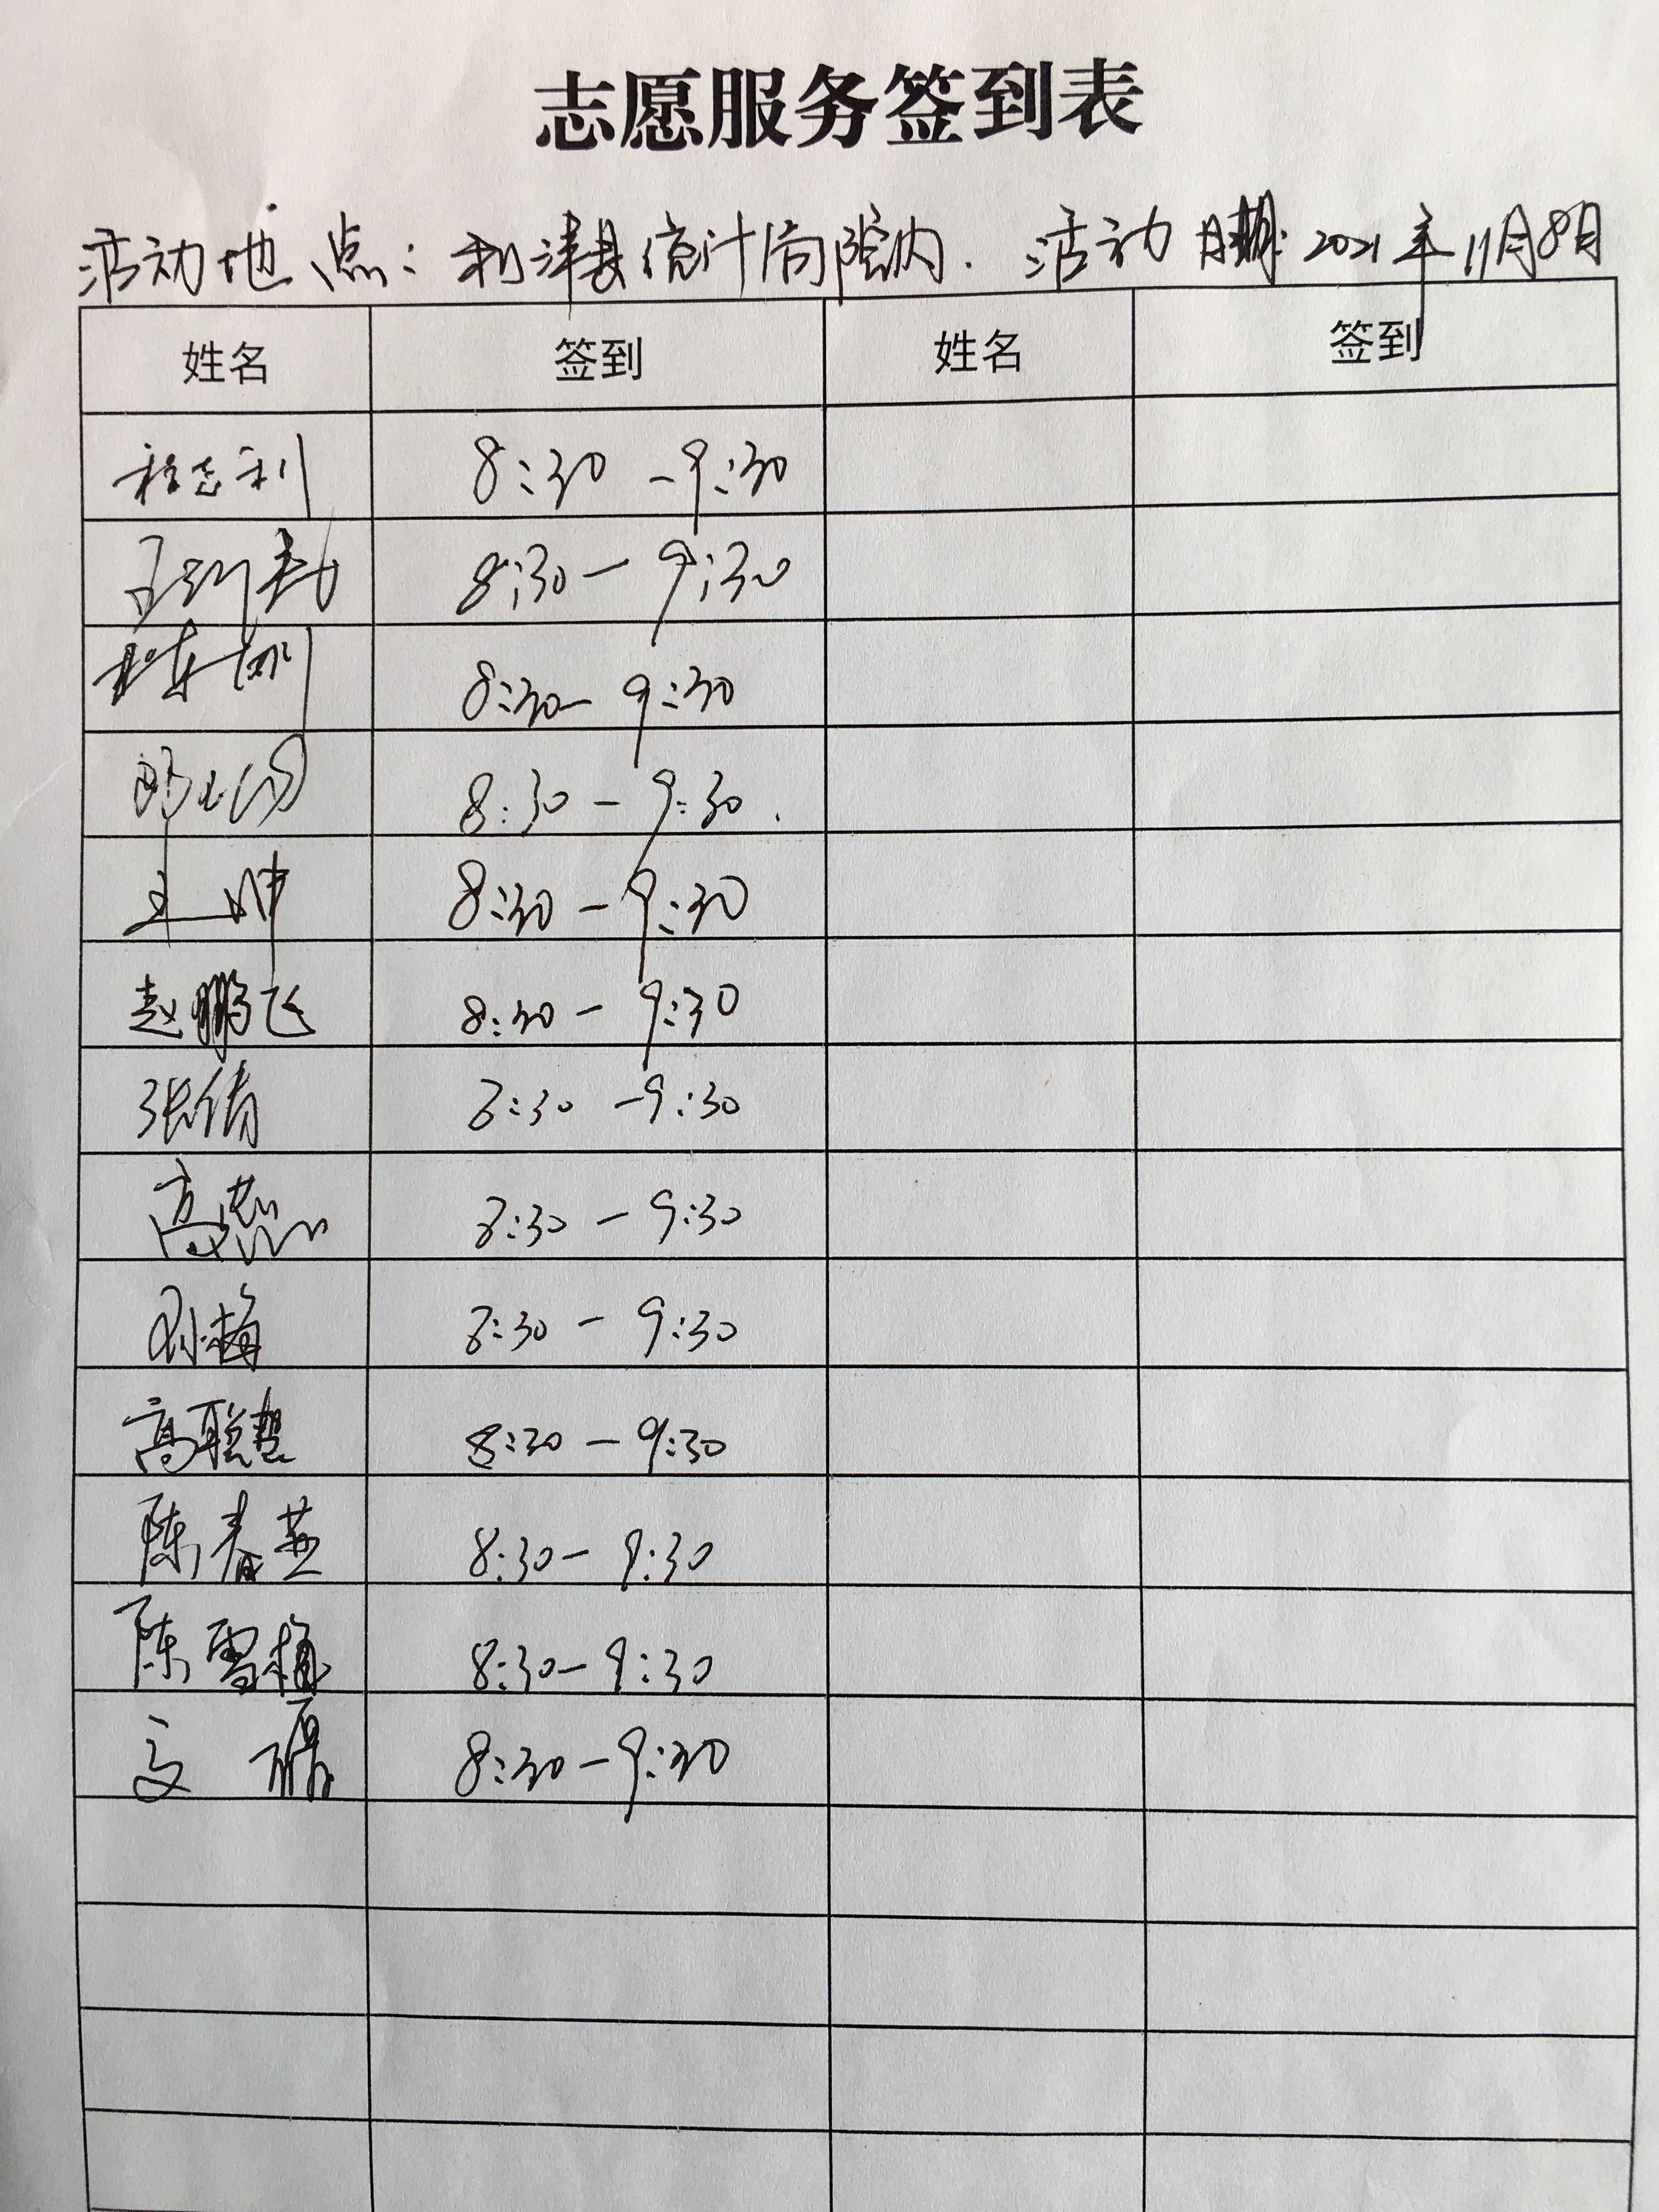 志愿服务签到表
活动地点：利津县统计局院内. 活动日期: 2021年11月8日
姓名 签到 姓名 签到
程志利 8:30 - 9:30
8:30 - 9:30
8:30 - 9:30
8:30 - 9:30.
王坤 8:30 - 9:30
赵鹏飞 8:30 - 9:30
张倩 8:30 - 9:30
高 8:30 - 9:30
孙梅 8:30 - 9:30
高联 8:30 - 9:30
陈春燕 8:30 - 9:30
陈雪梅 8:30 - 9:30
文 8:30 - 9:30